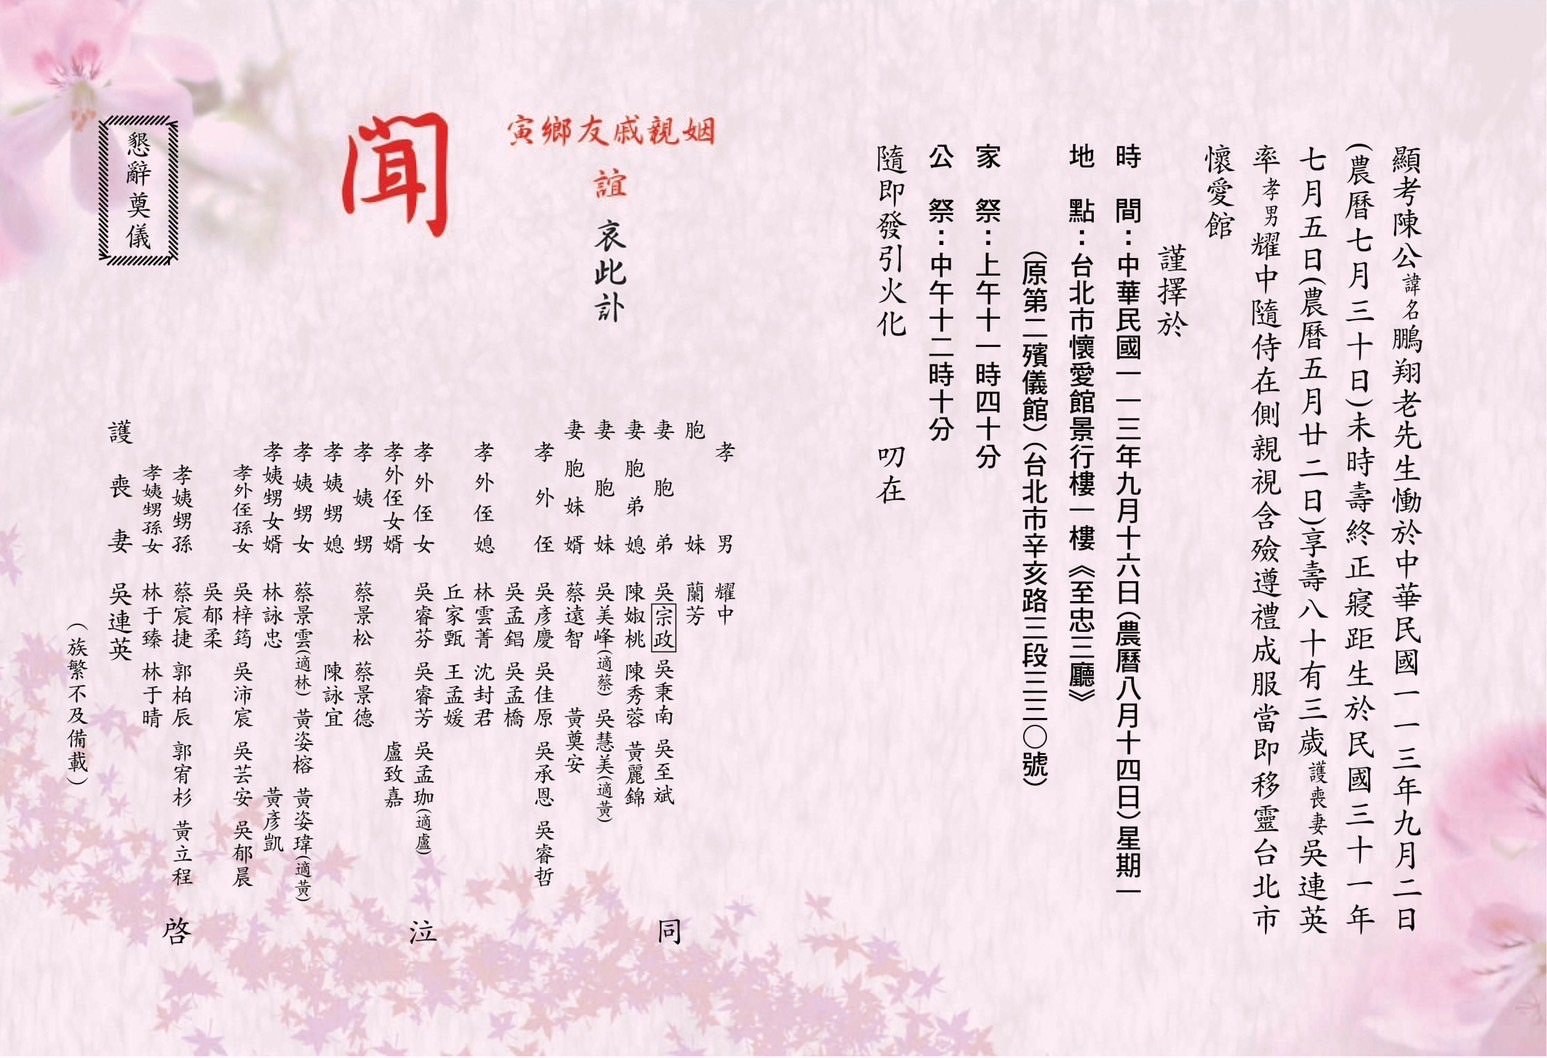 顯考陳公諱名鵬翔老先生慟於中華民國一一三年九月二日
(農曆七月三十日)未時壽終正寢距生於民國三十一年
七月五日(農曆五月廿二日)享壽八十有三歲護喪妻吳連英
率孝男耀中隨侍在側親視含殮遵禮成服當即移靈台北市
懷愛館
謹擇於
時　間：中華民國一一三年九月十六日(農曆八月十四日)星期一
地　點：台北市懷愛館景行樓一樓《至忠三廳》
(原第二殯儀館)(台北市辛亥路三段三三〇號)
家　祭：上午十一時四十分
公　祭：中午十二時十分
隨即發引火化　叨在
姻親戚友鄉寅
誼
哀此訃
聞
孝男　耀中
胞妹　蘭芳
妻胞弟　吳宗政　吳秉南　吳至斌
妻胞弟媳　陳婌桃　陳秀蓉　黃麗錦
妻胞妹　吳美峰(適蔡)　吳慧美(適黃)
妻胞妹婿　蔡遠智　黃奠安
孝外侄　吳彥慶　吳佳原　吳承恩　吳睿哲
吳孟錩　吳孟橋
孝外侄媳　林雲菁　沈封君
丘家甄　王孟媛
孝外侄女　吳睿芬　吳睿芳　吳孟珈(適盧)
孝外侄女婿　盧致嘉
孝姨甥　蔡景松　蔡景德
孝姨甥媳　陳詠宜
孝姨甥女　蔡景雲(適林)　黃姿榕　黃姿瑋(適黃)
孝姨甥女婿　林詠忠　黃彥凱
孝外侄孫女　吳梓筠　吳沛宸　吳芸安　吳郁晨
吳郁柔
孝姨甥孫　蔡宸捷　郭柏辰　郭宥杉　黃立程
孝姨甥孫女　林于臻　林于晴
護喪妻　吳連英
(族繁不及備載)
同　泣　啓
懇辭奠儀